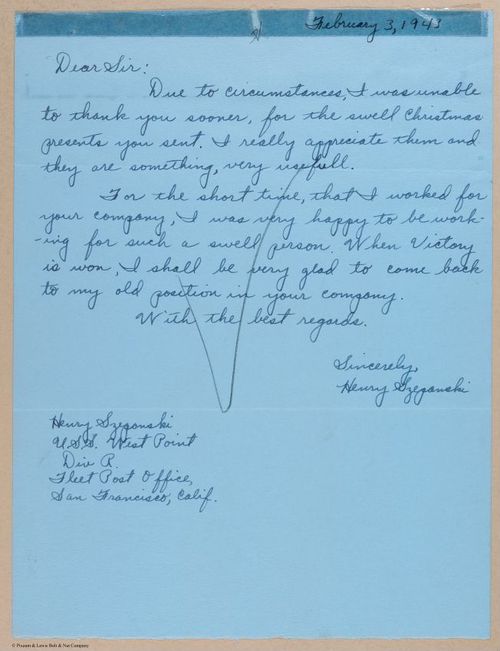 February 3, 1943
Dear Sir:
Due to circumstances, I was unable
to thank you sooner, for the swell Christmas
presents you sent. I really appreciate them and
they are something, very usefull.
For the short time, that I worked for
your company, I was very happy to be work-
-ing for such a swell person. When Victory
is won, I shall be very glad to come back
to my old position in your company.
With the best regards.
Sincerely,
Henry Szeganski
Henry Szeganski
U.S.S. West Point
Div R.
Fleet Post Office,
San Francisco, Calif.
© Pioneer & Lewis Bolt & Nut Company